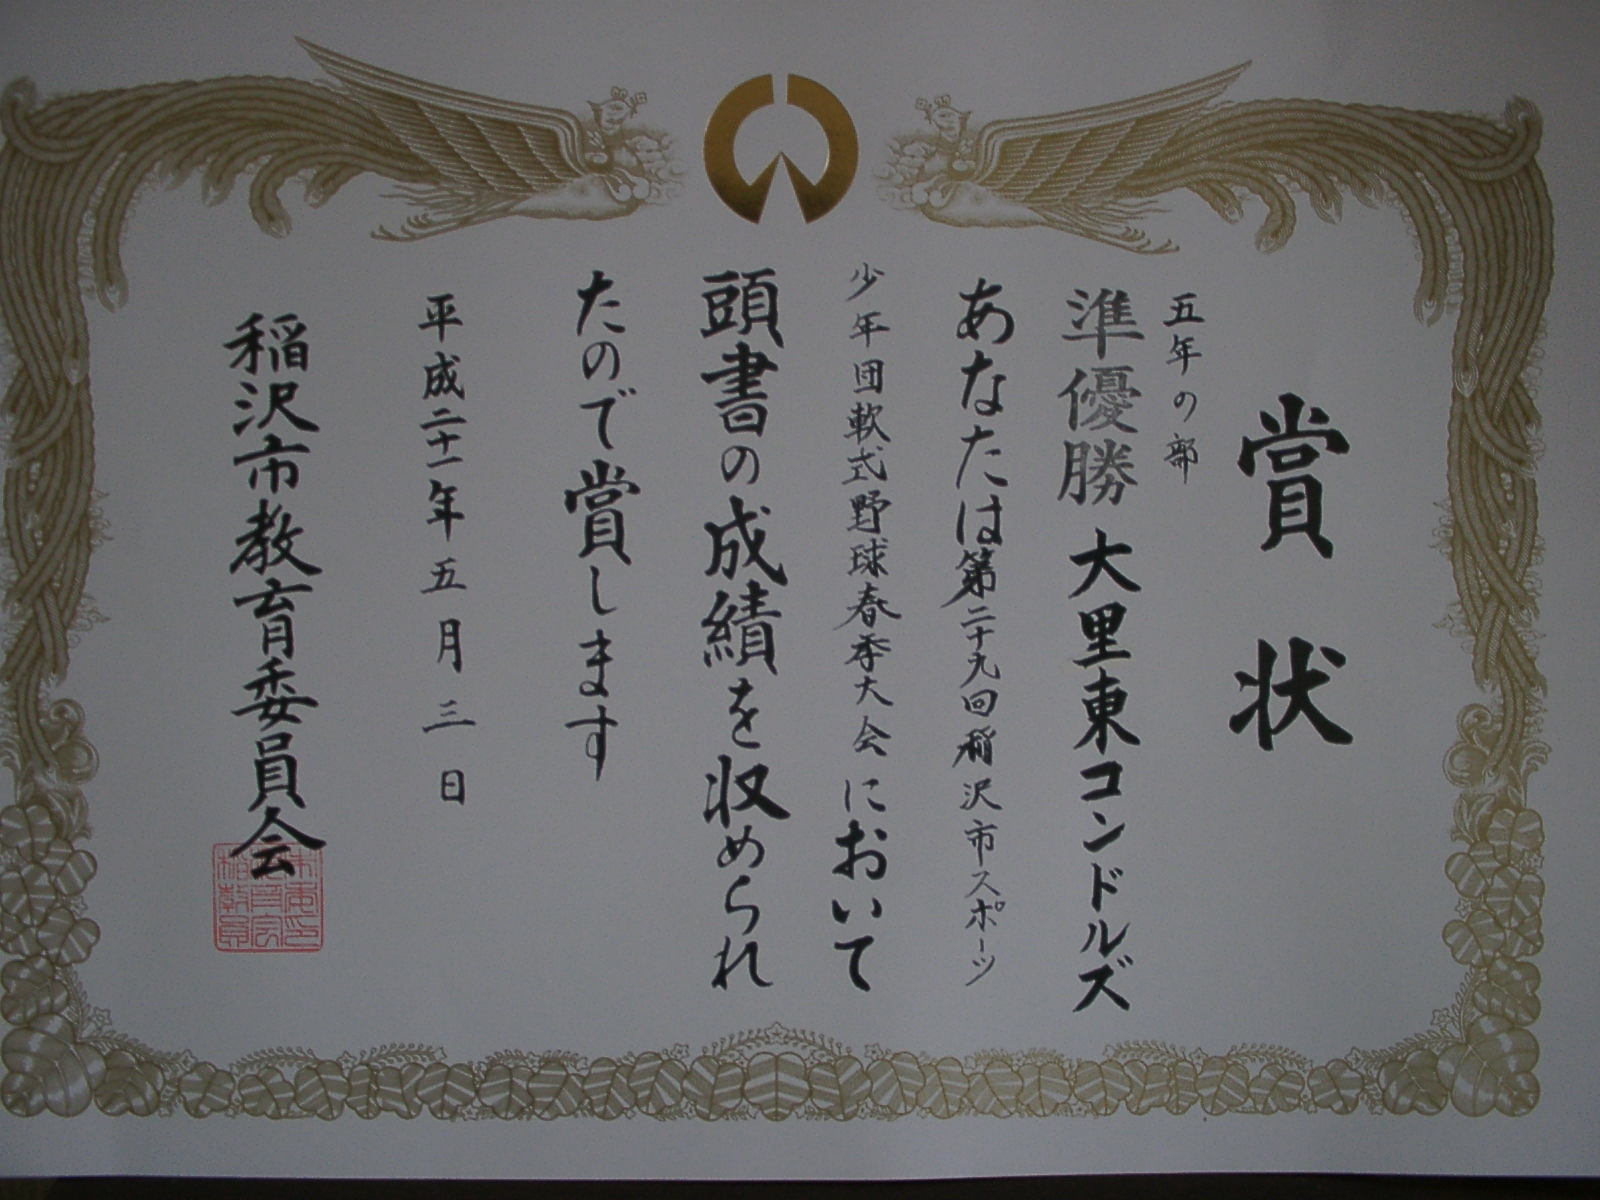 賞状
五年の部
準優勝 大里東コンドルズ
あなたは第二十九回稲沢市スポーツ
少年団軟式野球春季大会において
頭書の成績を収められ
たので賞します
平成二十一年五月三日
稲沢市教育委員会